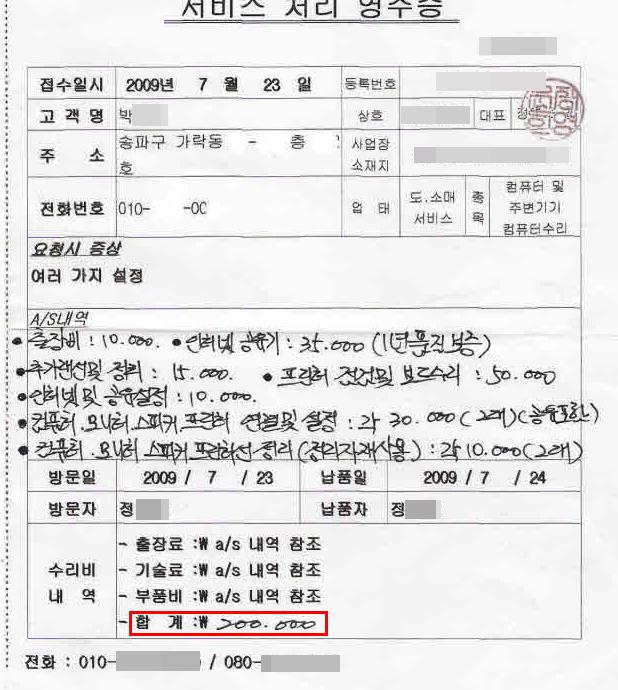 서비스 처리 영수증
접수일시 2009년 7 월 23 일 등록번호
고 객 명 박 상호 대표 정
주 소 송파구 가락동 - 층 호 사업장 소재지
전화번호 010- -00 업 태 도.소매 서비스 종목 컴퓨터 및 주변기기 컴퓨터수리
요청시 증상
여러 가지 설정
A/S내역
• 출장비 : 10.000. • 인터넷 공유기 : 35.000 (1년 품질보증)
• 추가랜선및 정리 : 15.000. • 프린터 점검및 보드수리 : 50.000
• 인터넷및 공유설정 : 10.000.
• 컴퓨터.모니터.스피커.프린터 연결및 설정 : 각 30.000 (2대)(공유포함)
• 컴퓨터.모니터.스피커.프린터선정리 (정리자재사용) : 각 10.000 (2대)
방문일 2009 / 7 / 23 납품일 2009 / 7 / 24
방문자 정 납품자 정
수리비 내 역
- 출장료 :₩ a/s 내역 참조
- 기술료 :₩ a/s 내역 참조
- 부품비 :₩ a/s 내역 참조
- 합 계 :₩ 200.000
전화 : 010- / 080-